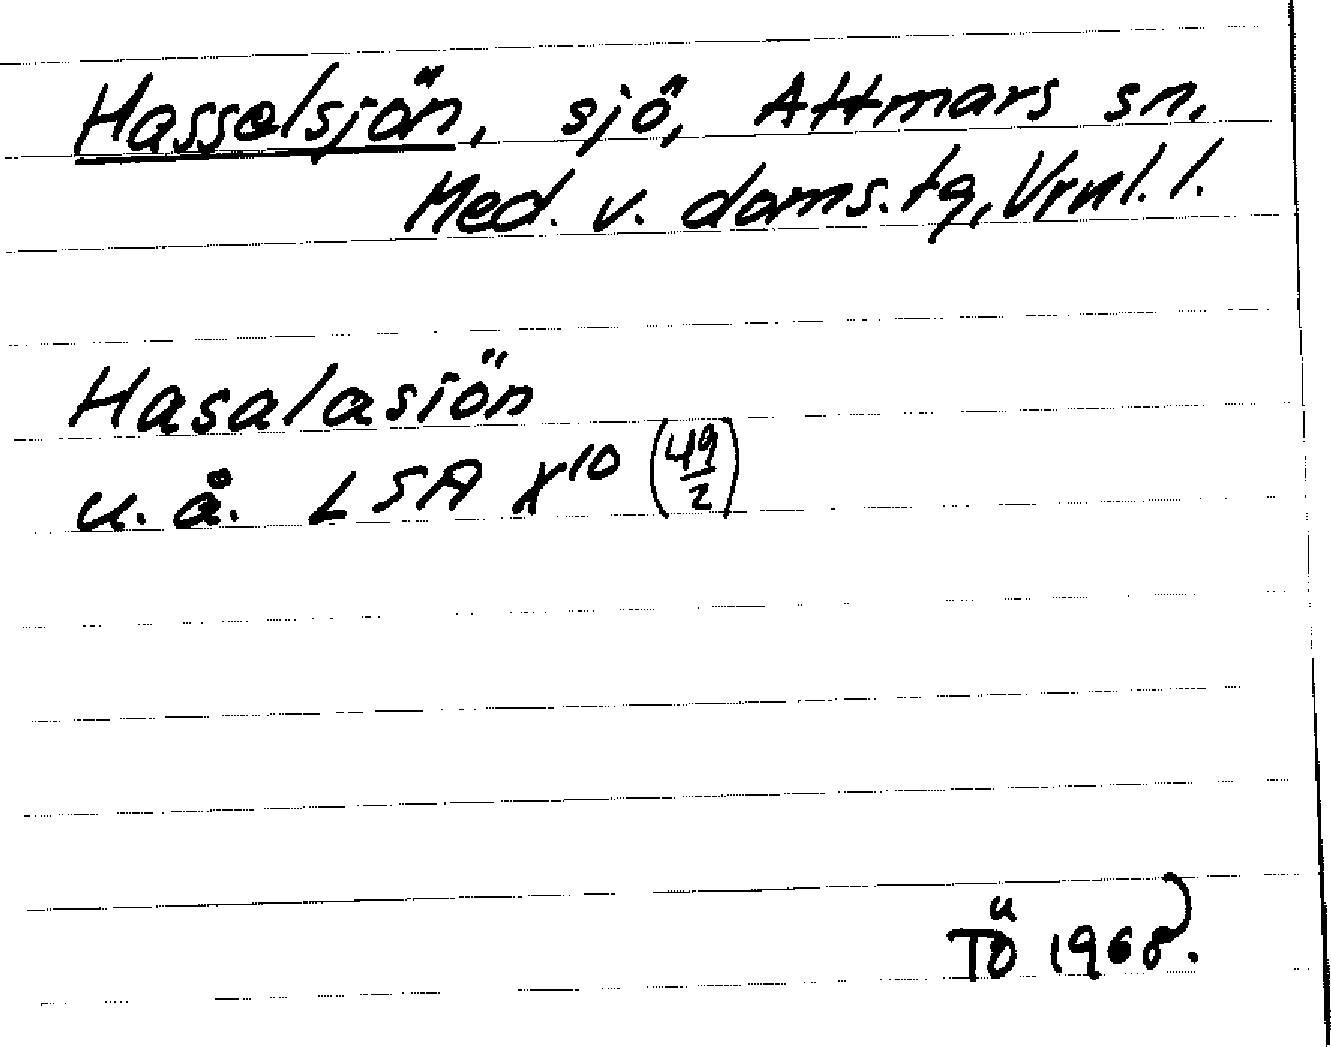 Hasselsjön, sjö, Attmars sn,
Med. v. doms. tg, Vrnl. l.
Hasalasiön
u. å. LSA X10 (49/2)
TÖ 1968.